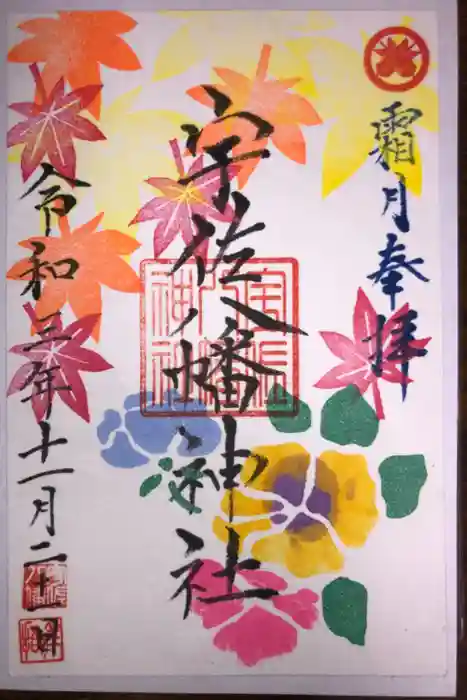 霜月奉拝
宇佐八幡神社
令和三年十一月二十一日